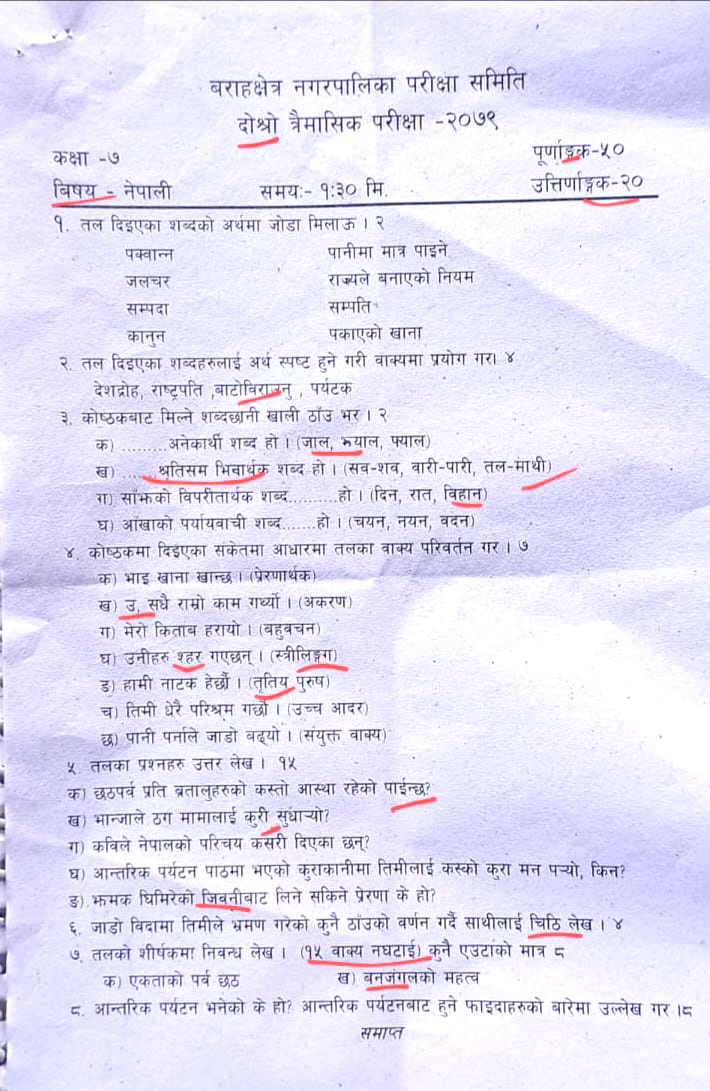 बराहक्षेत्र नगरपालिका परीक्षा समिति
दोश्रो त्रैमासिक परीक्षा -२०७९
कक्षा -७ पूर्णाङ्क-५०
बिषय - नेपाली समयः- १:३० मि. उत्तिर्णाङ्क-२०
१. तल दिइएका शब्दको अर्थमा जोडा मिलाऊ । २
पक्वान्न पानीमा मात्र पाइने
जलचर राज्यले बनाएको नियम
सम्पदा सम्पति
कानुन पकाएको खाना
२. तल दिइएका शब्दहरुलाई अर्थ स्पष्ट हुने गरी वाक्यमा प्रयोग गर। ४
देशद्रोह, राष्ट्रपति ,बाटोविराउनु , पर्यटक
३. कोष्ठकबाट मिल्ने शब्दछानी खाली ठाँउ भर । २
क) .........अनेकार्थी शब्द हो । (जाल, झ्याल, फ्याल)
ख) ......श्रतिसम भिन्नार्थक शब्द हो । (सव-शव, वारी-पारी, तल-माथी)
ग) साँझको विपरीतार्थक शब्द..........हो । (दिन, रात, विहान)
घ) आँखाको पर्यायवाची शब्द.......हो । (चयन, नयन, वदन)
४. कोष्ठकमा दिइएका संकेतमा आधारमा तलका वाक्य परिवर्तन गर । ७
क) भाइ खाना खान्छ । (प्रेरणार्थक)
ख) उ, सधै राम्रो काम गर्थ्यो । (अकरण)
ग) मेरो किताब हरायो । (बहुबचन)
घ) उनीहरु श्हर गएछन् । (स्त्रीलिङ्गग)
ङ) हामी नाटक हेर्छौं । (तृतिय पुरुष)
च) तिमी धेरै परिश्रम गर्छौ । (उच्च आदर)
छ) पानी पर्नाले जाडो बढ्यो । (संयुक्त वाक्य)
५. तलका प्रश्नहरु उत्तर लेख । १५
क) छठपर्व प्रति ब्रतालुहरुको कस्तो आस्था रहेको पाईन्छ?
ख) भान्जाले ठग मामालाई कुरी सुधार्‍यो?
ग) कविले नेपालको परिचय कसरी दिएका छन्?
घ) आन्तरिक पर्यटन पाठमा भएको कुराकानीमा तिमीलाई कस्को कुरा मन पर्‍यो, किन?
ङ) झमक घिमिरेको जिवनीबाट लिने सकिने प्रेरणा के हो?
६. जाडो विदामा तिमीले भ्रमण गरेको कुनै ठाँउको वर्णन गर्दै साथीलाई चिठि लेख । ४
७. तलको शीर्षकमा निवन्ध लेख । (१५ वाक्य नघटाई) कुनै एउटाको मात्र ८
क) एकताको पर्व छठ ख) बनजंगलको महत्व
८. आन्तरिक पर्यटन भनेको के हो? आन्तरिक पर्यटनबाट हुने फाइदाहरुको बारेमा उल्लेख गर ।८
समाप्त